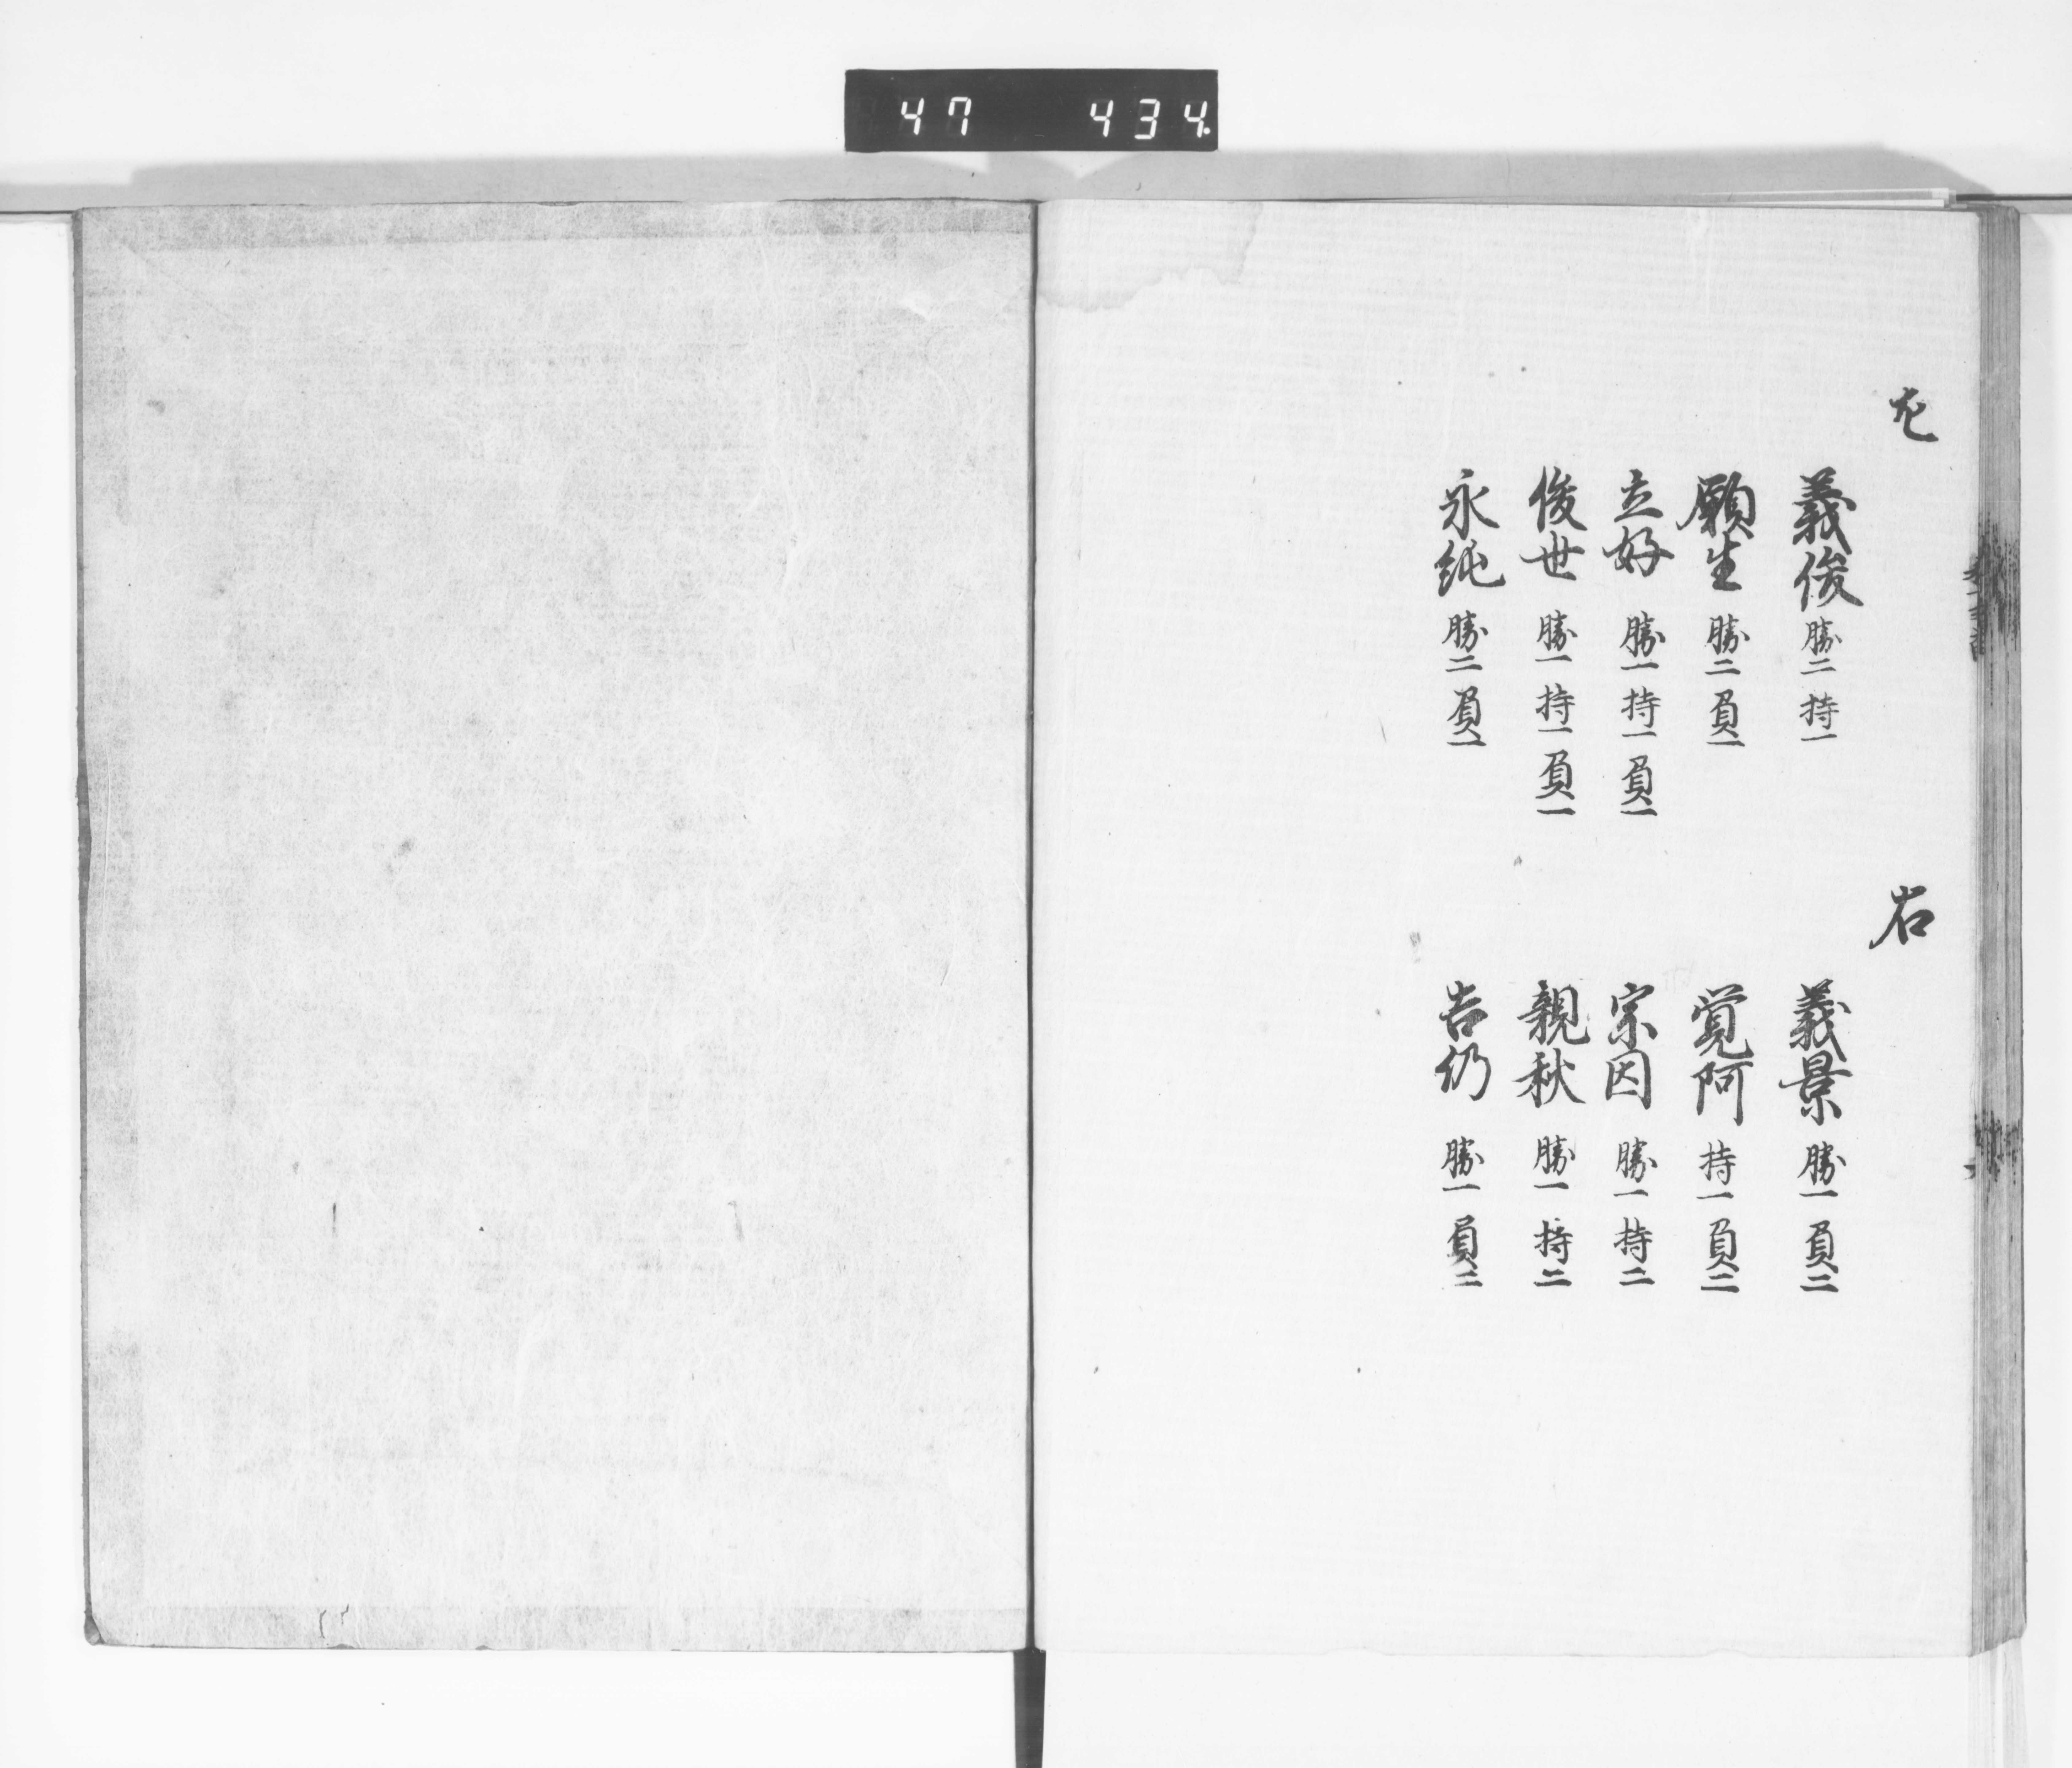 47 434
左
義俊 勝二 持一
願生 勝二 負一
立好 勝一 持一 負一
俊世 勝一 持一 負一
永純 勝二 負一
右
義景 勝一 負二
覚阿 持一 負二
宗因 勝一 持二
親秋 勝一 持二
吉仍 勝一 負二